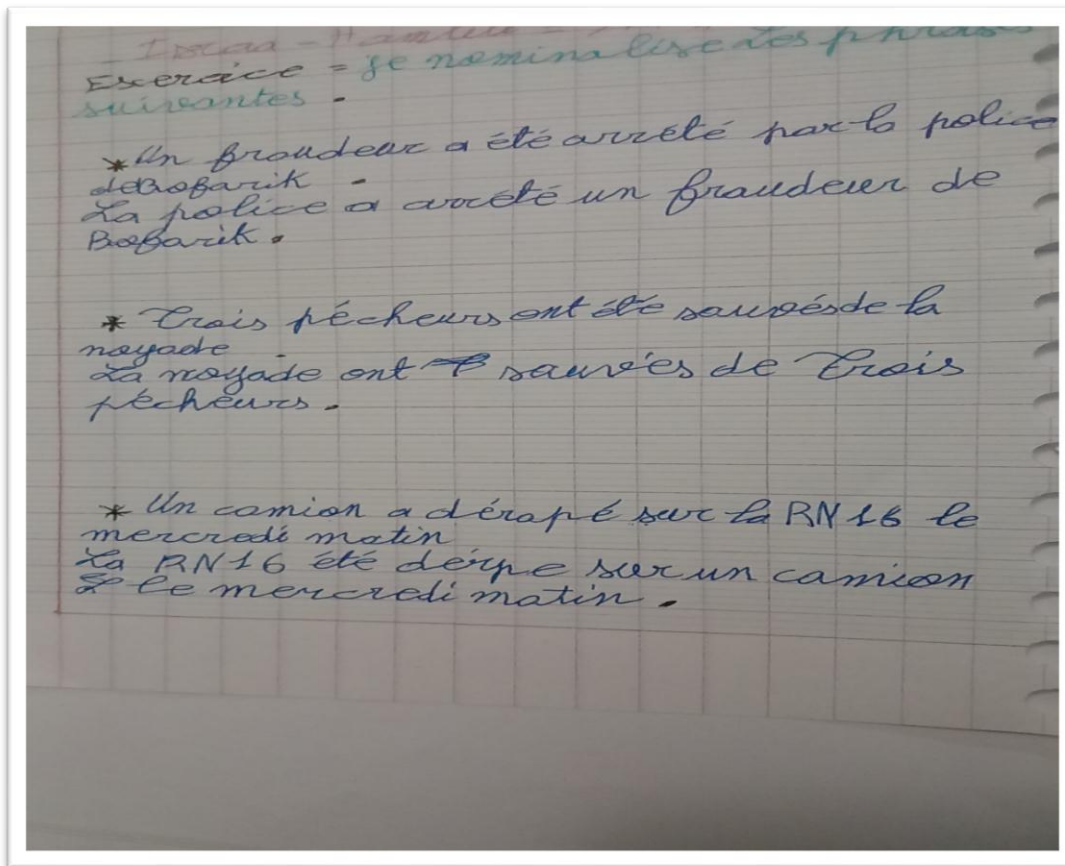 Exercice = je nominalise les phrases
suivantes -
* Un fraudeur a été arrété par la police
deBofarik -
La police a arrêté un fraudeur de
Bofarik.
* Trois pécheurs ont été sauvésde la
noyade
La noyade ont sauvés de Trois
pécheurs.
* Un camion a dérapé sur la RN16 le
mercredi matin
La RN16 été dérpe sur un camion
le mercredi matin.